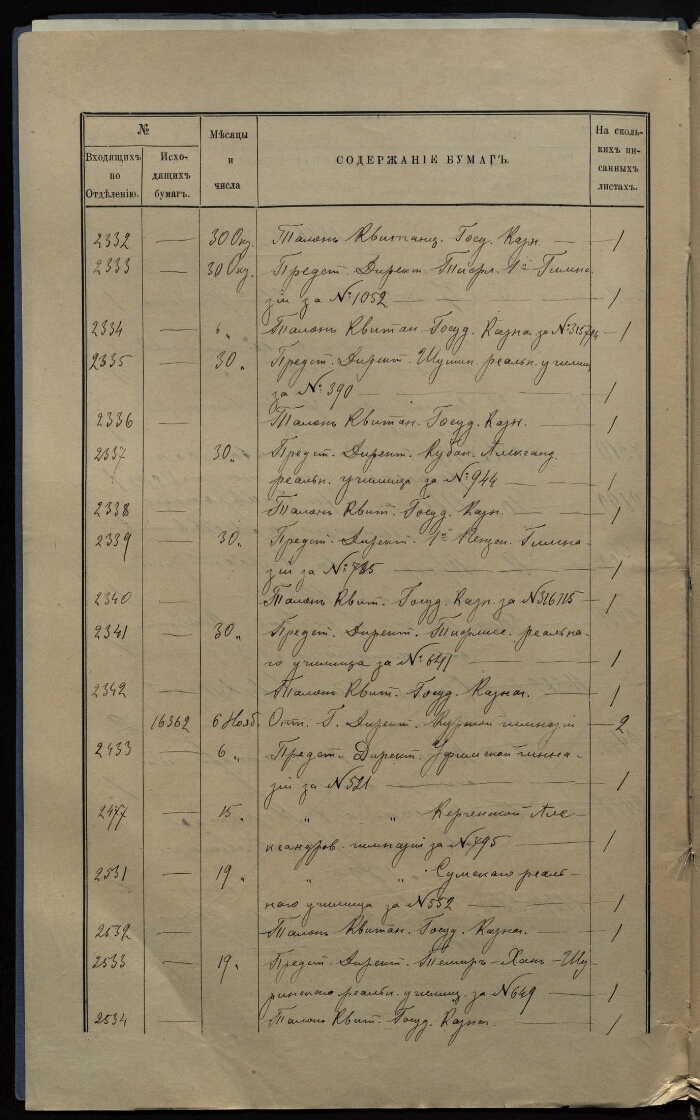 №
Входящихъ по Отдѣленію.
Исхо-дящихъ бумагъ.
Мѣсяцы и числа
СОДЕРЖАНІЕ БУМАГЪ.
На сколь-кихъ пи-санныхъ листахъ.
2332 — 30 Окт. Талонъ Квитанц. Госуд. Казн. — 1
2333 — 30 Окт. Предст. Директ. Тифл. 1й Гимна-
зіи за № 1052 — 1
2334 — " Талонъ Квитан. Госуд. Казна за — 1
2335 — 30 " Предст. Директ. Шушин. реальн. училищ
за № 390 — 1
2336 — Талонъ Квитан. Госуд. Казн. — 1
2337 — 30 " Предст. Директ. Кубан. Александ.
реальн. училища за № 944 — 1
2338 — Талонъ Квит. Госуд. Казн. — 1
2339 — 30 " Предст. Директ. 1й Пензен. Гимна-
зіи за № 785 — 1
2340 — Талонъ Квит. Госуд. Казн. за № 316115 — 1
2341 — 30 " Предст. Директ. Тифлисс. реальна-
го училища за № 641 — 1
2342 — Талонъ Квит. Госуд. Казнач. — 1
16362 6 Нояб. Отн. Г. Директ. Курской гимназіи — 2
2433 — 6 " Предст. Директ. Уфимской гимна-
зіи за № 521 — 1
2477 — 15 " " " Керченской Але-
ксандров. гимназіи за № 795 — 1
2531 — 19 " " " Сумского реаль-
ного училища за № 552 — 1
2532 — Талонъ Квитан. Госуд. Казнач. — 1
2533 — 19 " Предст. Директ. Темиръ-Ханъ-Шу-
ринского реальн. училищ. за № 649 — 1
2534 — Талонъ Квит. Госуд. Казнач. — 1